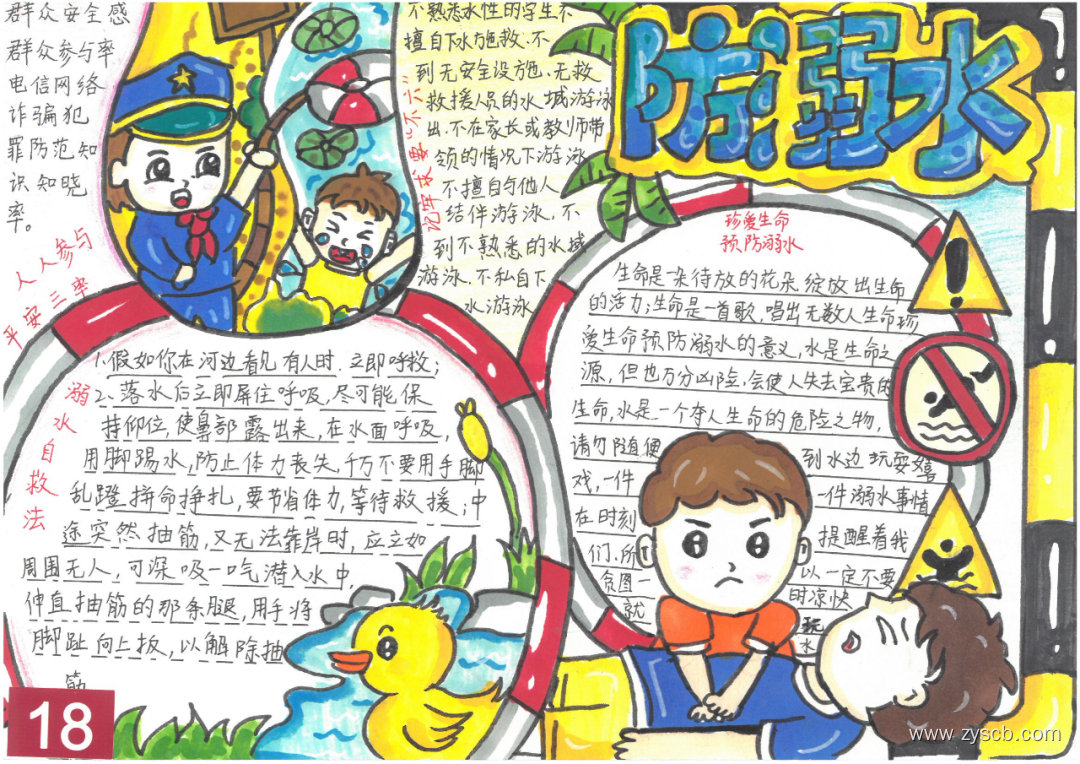 群众安全感
群众参与率
电信网络
诈骗犯
罪防范知
识知晓
率。
人人参与
平安三率
不熟悉水性的学生不
擅自下水施救.不
到无安全设施、无救
救援人员的水域游泳
出.不在家长或教师带
领的情况下游泳
不擅自与他人
结伴游泳,不
到不熟悉的水域
游泳.不私自下
水游泳
记牢我要“不六”
防溺水
珍爱生命
预防溺水
生命是一朵待放的花朵绽放出生命
的活力;生命是一首歌,唱出无数人生命珍
爱生命预防溺水的意义,水是生命之
源,但也万分凶险,会使人失去宝贵的
生命,水是一个夺人生命的危险之物,
请勿随便到水边玩耍嬉
戏,一件一件溺水事情
在时刻提醒着我
们.所以一定不要
贪图一时凉快
就玩
水
溺水自救法
1.假如你在河边看见有人时.立即呼救;
2、落水后立即屏住呼吸,尽可能,保
持仰位,使鼻部露出来,在水面呼吸,
用脚踢水,防止体力丧失,千万不要用手脚
乱蹬拼命挣扎,要节省体力,等待救援;中
途突然抽筋,又无法靠岸时,应立如
周围无人,可深吸一口气潜入水中,
伸直抽筋的那条腿,用手将
脚趾向上扳,以解除抽
筋
18
www.zyscb.com